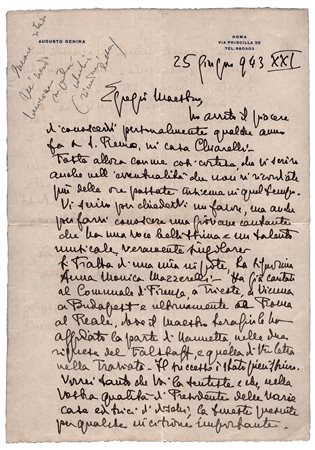 AUGUSTO GENINA
ROMA
VIA PRISCILLA 55
TEL. 880203
25 Giugno 943 XXI
Egregio Maestro,
ho avuto il piacere
di conoscervi personalmente qualche anno
fa a S. Remo, in casa Chiarelli.
Foste allora con me così cortese che vi scrivo
anche nell'eventualità che non vi ricordiate
più delle ore passate insieme in quel tempo.
Vi scrivo per chiedervi un favore, ma anche
per farvi conoscere una giovane cantante
che ha una voce bellissima e un talento
musicale, veramente singolare.
Si tratta di una mia nipote, la signorina
Anna Monica Mazzerelli. Ha già cantato
al Comunale di Firenze, a Trieste, a Vienna
a Budapest e ultimamente a Roma
al Reale, dove il maestro Serafin le ha
affidato la parte di Nannetta nelle due
riprese del Falstaff, e quella di Violetta
nella Traviata. Il successo è stato pienissimo.
Vorrei tanto che voi la sentiste e che, nella
vostra qualità di Presidente delle varie
case editrici di dischi, la teneste presente
per qualche incisione importante.